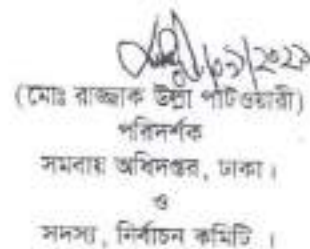 (মোঃ রাজ্জাক উল্লা পাটওয়ারী)
পরিদর্শক
সমবায় অধিদপ্তর, ঢাকা।
ও
সদস্য, নির্বাচন কমিটি ।